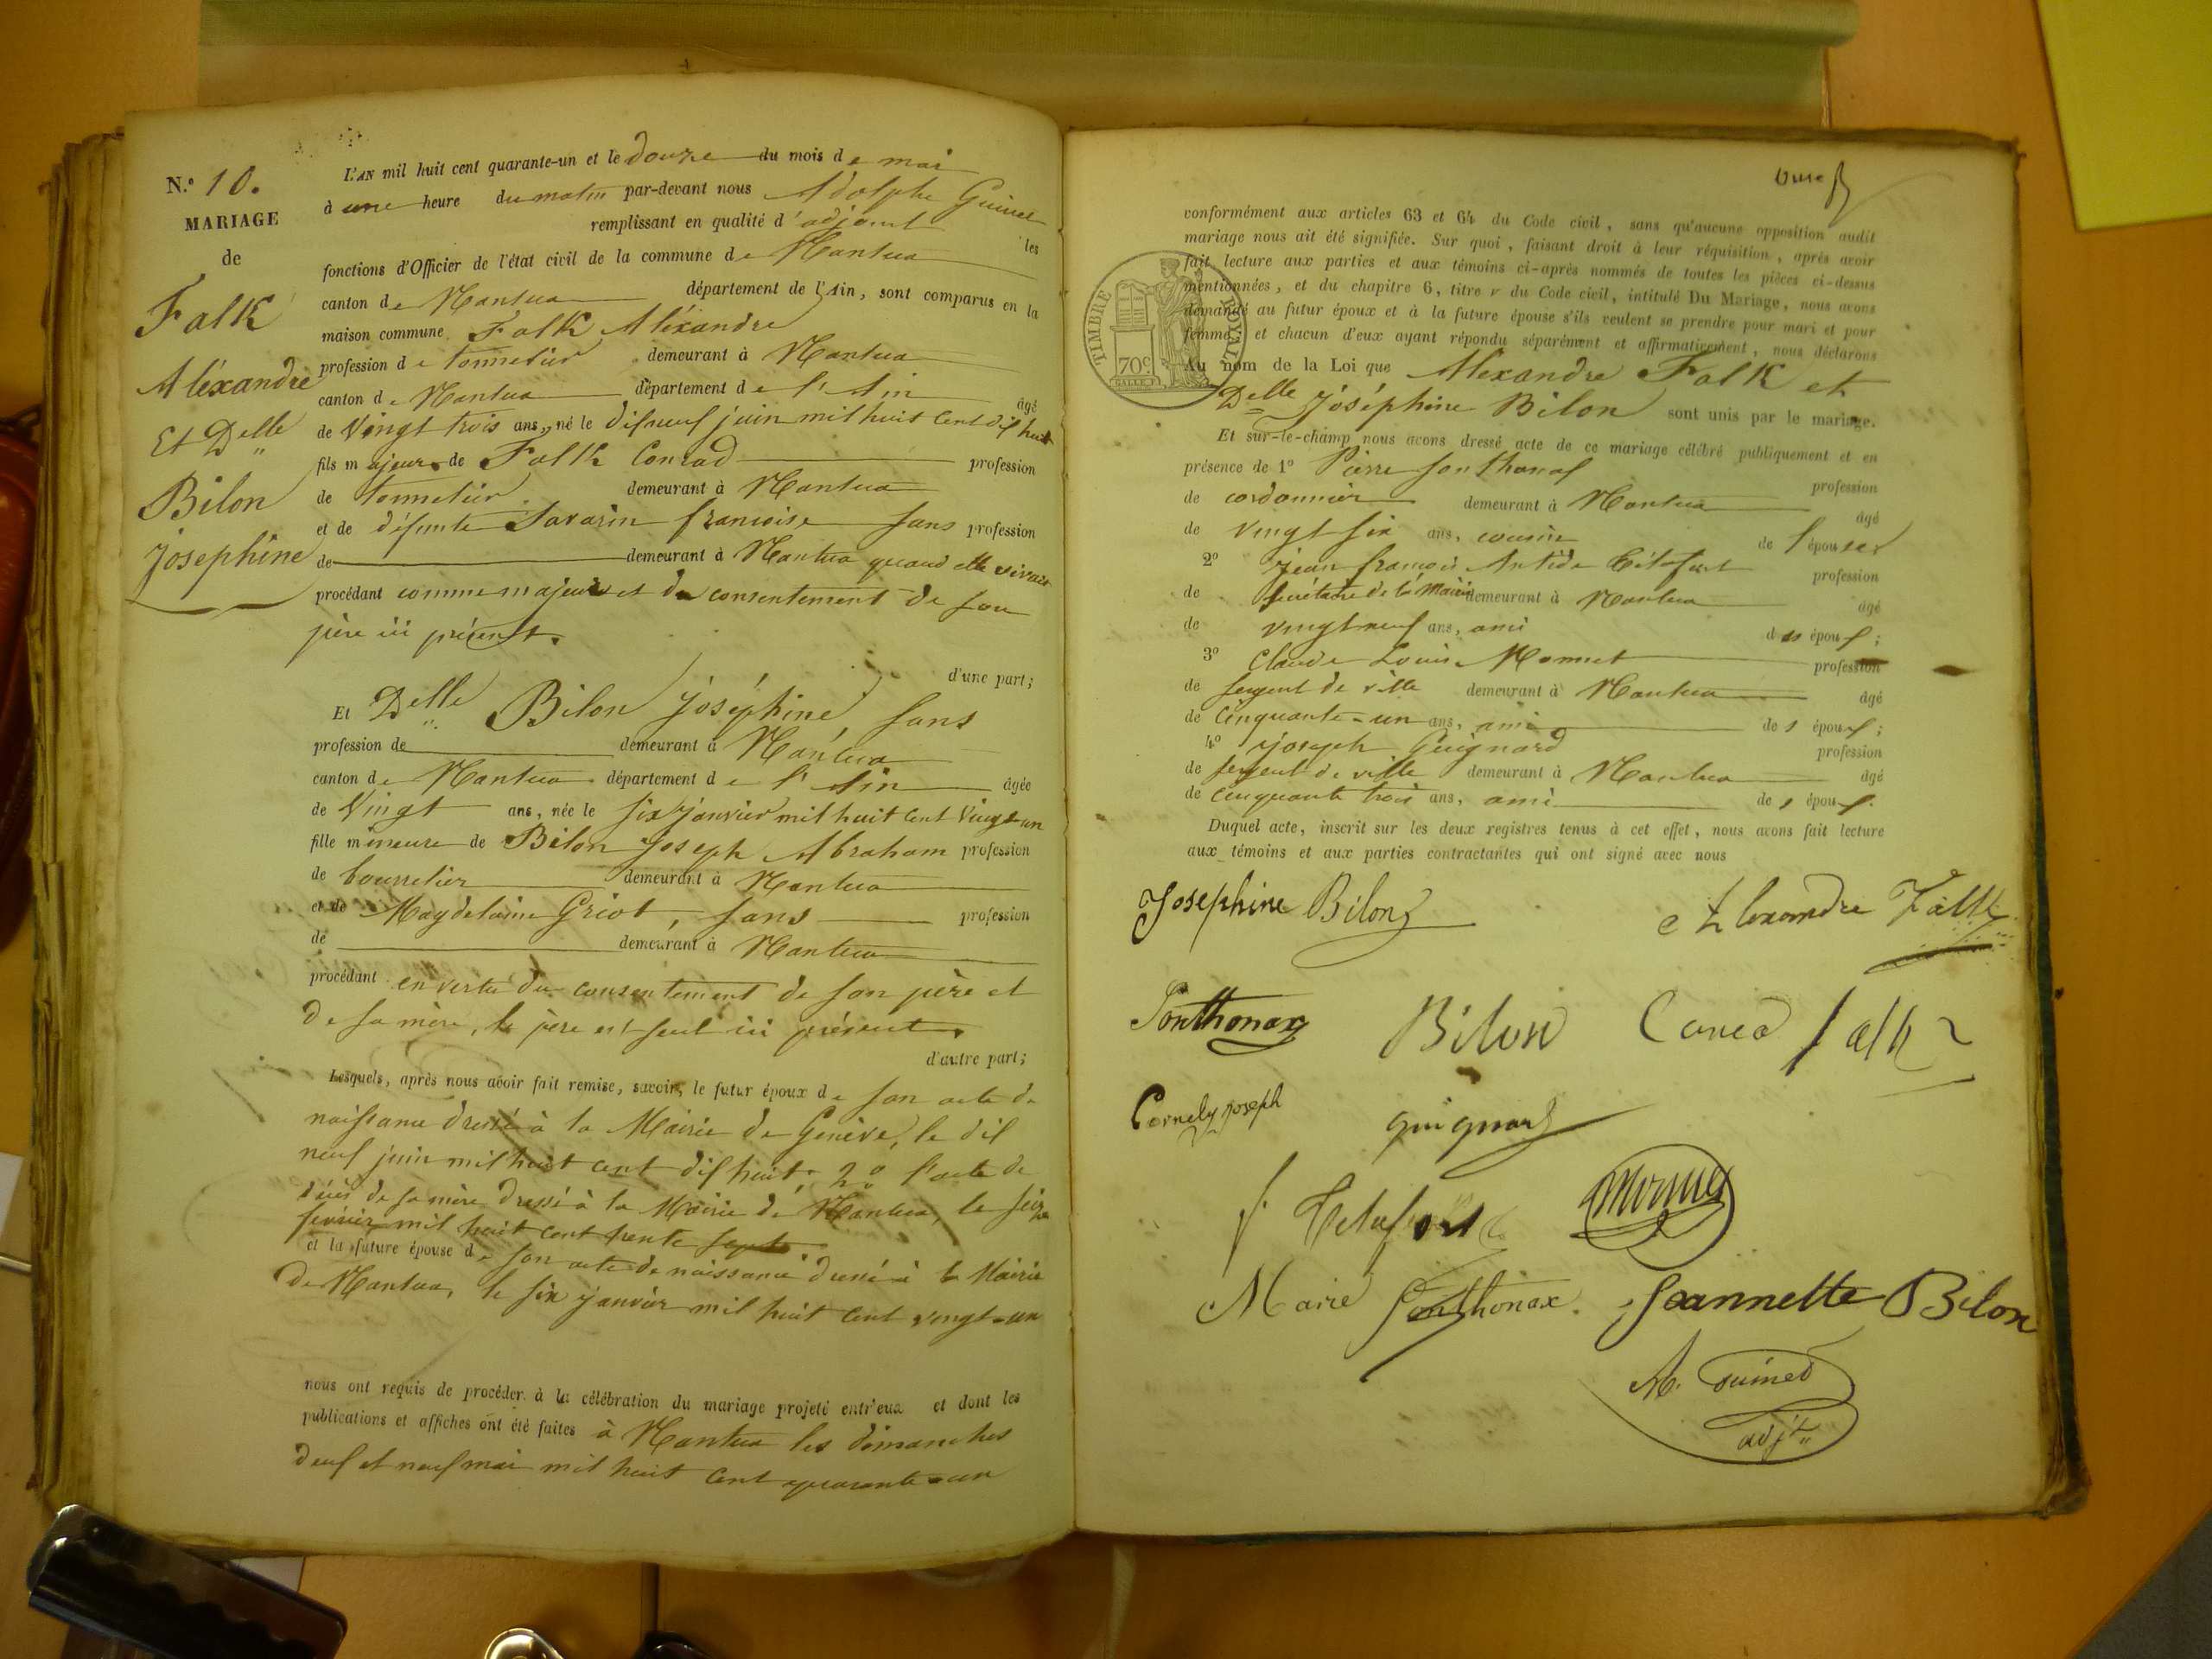 N.º 10.
MARIAGE
de
Falk
Aléxandre
Et Delle
Bilon
Josephine
L'AN mil huit cent quarante-un et le douze du mois de mai
à une heure du matin par-devant nous Adolphe Guinet
remplissant en qualité d'adjoint les
fonctions d'Officier de l'état civil de la commune de Nantua
canton de Nantua département de l'Ain, sont comparus en la
maison commune Falk Aléxandre
profession de tonnelier demeurant à Nantua
canton de Nantua département de l'Ain âgé
de Vingt trois ans, né le dixneuf juin mil huit cent dix huit
fils majeur de Falk Conrad profession
de tonnelier demeurant à Nantua
et de défunte Savarin françoise sans profession
de demeurant à Nantua quand elle vivait
procédant comme majeur et du consentement de son
père ici présent.
d'une part;
Et Delle Bilon Joséphine, sans
profession de demeurant à Nantua
canton de Nantua département de l'Ain âgée
de Vingt ans, née le six janvier mil huit cent Vingt-un
fille mineure de Bilon Joseph Abraham profession
de bourrelier demeurant à Nantua
et de Magdelaine Griot, sans profession
de demeurant à Nantua
procédant en vertu du consentement de son père et
de sa mère, le père est seul ici présent.
d'autre part;
Lesquels, après nous avoir fait remise, savoir, le futur époux de son acte de
naissance dressé à la Mairie de Genève, le dix
neuf juin mil huit cent dix huit; 2º l'acte de
décès de sa mère dressé à la Mairie de Nantua, le seize
février mil huit cent trente sept.
et la future épouse de son acte de naissance dressé à la Mairie
de Nantua, le six janvier mil huit cent vingt-un
nous ont requis de procéder à la célébration du mariage projeté entr'eux et dont les
publications et affiches ont été faites à Nantua les dimanches
deux et neuf mai mil huit cent quarante-un
onze
conformément aux articles 63 et 64 du Code civil, sans qu'aucune opposition audit
mariage nous ait été signifiée. Sur quoi, faisant droit à leur réquisition, après avoir
fait lecture aux parties et aux témoins ci-après nommés de toutes les pièces ci-dessus
mentionnées, et du chapitre 6, titre V du Code civil, intitulé Du Mariage, nous avons
demandé au futur époux et à la future épouse s'ils veulent se prendre pour mari et pour
femme, et chacun d'eux ayant répondu séparément et affirmativement, nous déclarons
TIMBRE ROYAL
70c
Au nom de la Loi que Alexandre Falk et
Delle Joséphine Bilon sont unis par le mariage.
Et sur-le-champ nous avons dressé acte de ce mariage célébré publiquement et en
présence de 1º Pierre Sonthonax profession
de cordonnier demeurant à Nantua âgé
de vingt six ans, cousin de l'époux
2º Jean françois Antide Tétafort profession
de Secrétaire de la Mairie demeurant à Nantua âgé
de vingt neuf ans, ami des époux;
3º Claude Louis Monnet profession
de sergent de ville demeurant à Nantua âgé
de cinquante-un ans, ami des époux;
4º Joseph Guignard profession
de sergent de ville demeurant à Nantua âgé
de cinquante trois ans, ami des époux.
Duquel acte, inscrit sur les deux registres tenus à cet effet, nous avons fait lecture
aux témoins et aux parties contractantes qui ont signé avec nous
Josephine Bilon Alexandre Falk
Sonthonax Bilon Conrad falk
Cornely joseph guignard
f. Tetafort Monnet
Marie Sonthonax. Jeannette Bilon
A. Guinet
adjt